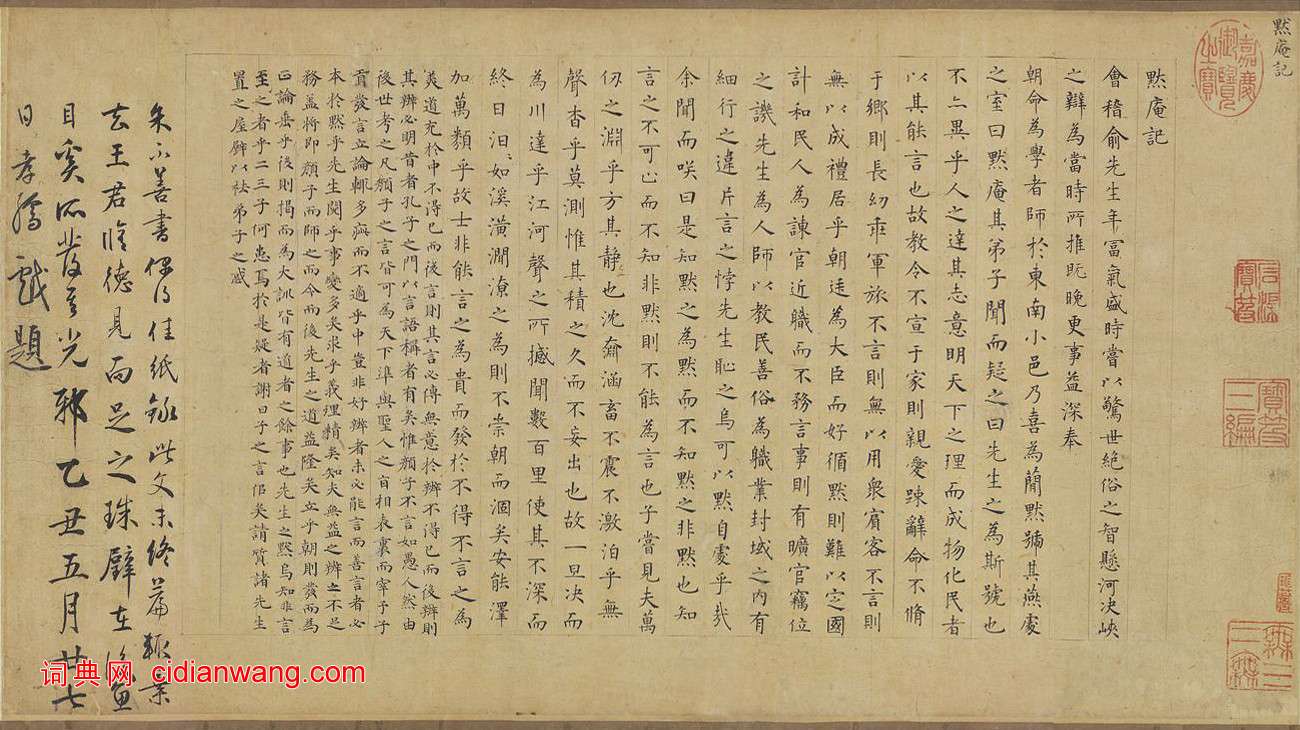 默庵记
默庵記
會稽俞先生年富氣盛時嘗以驚世絕俗之智懸河决峽
之辯為當時所推既晚更事益深奉
朝命為學者師於東南小邑乃喜為簡默號其燕處
之室曰默庵其弟子聞而疑之曰先生之為斯號也
不亦異乎人之達其志意明天下之理而成物化民者
以其能言也故教令不宣于家則親愛踈辭命不脩
于鄉則長幼乖軍旅不言則無以用衆賓客不言則
無以成禮居乎朝廷為大臣而好循默則難以定國
計和民人為諫官近職而不務言事則有曠官竊位
之譏先生為人師以教民善俗為職業封域之內有
細行之違片言之悖先生恥之烏可以默自處乎哉
余聞而咲曰是知默之為默而不知默之非默也知
言之不可已而不知非默則不能為言也子嘗見夫萬
仞之淵乎方其靜也沈奫涵畜不震不激泊乎無
聲杳乎莫測惟其積之久而不妄出也故一旦决而
為川達乎江河聲之所撼聞數百里使其不深而
終日汩汩如溪潢澗潦之為則不崇朝而涸矣安能澤
加萬類乎故士非能言之為貴而發於不得不言之為
羙道充於中不得已而後言則其言必傳無意於辨不得已而後辨則
其辨必明昔者孔子之門以言語稱者有矣惟顏子不言如愚人然由
後世考之凡顏子之言皆可為天下準與聖人之旨相表裏而宰予子
貢發言立論輙多疵而不適乎中豈非好辨者未必能言而善言者必
本於默乎先生閱乎事變多矣求乎義理精矣知夫無益之辨之不足
務益將即顏子而師之而今而後先生之道益隆矣立乎朝則發而為
曰論垂乎後則揭而為大訓皆有道者之餘事也先生之默烏知非言
至之者乎二三子何患焉於是疑者謝曰子之言佀矣請質諸先生
置之屋壁以祛弟子之惑
朱不善書偶得佳紙錄此文未終篇輙棄
去王君惟德見而足之珠璧在後魚
目奚所發其光耶乙丑五月廿七
日孝孺戲題
嘉慶御覽之寶
石渠寶笈
寶笈三編
词典网 cidianwang.com